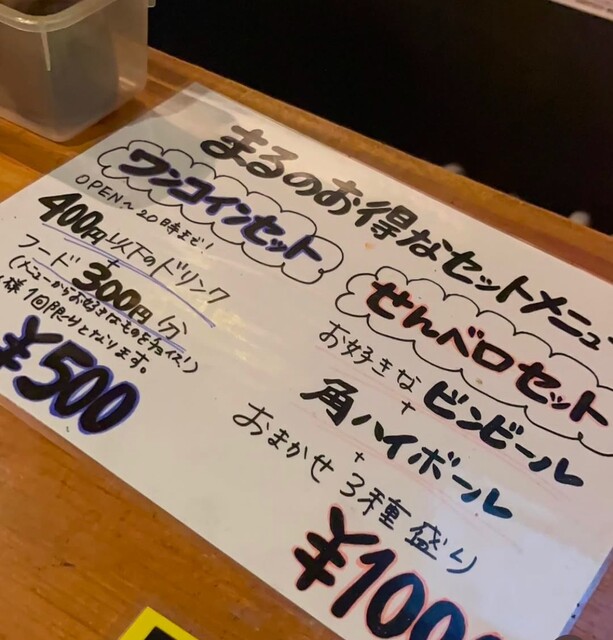 まるのお得なセットメニュー
ワンコインセット
OPEN〜20時まで!
400円以下のドリンク
+
フード300円分
(メニューからお好きなものをチョイス!)
様1回限りとなります。
¥500
せんベロセット
お好きなビンビール
+
角ハイボール
+
おまかせ3種盛り
¥1000